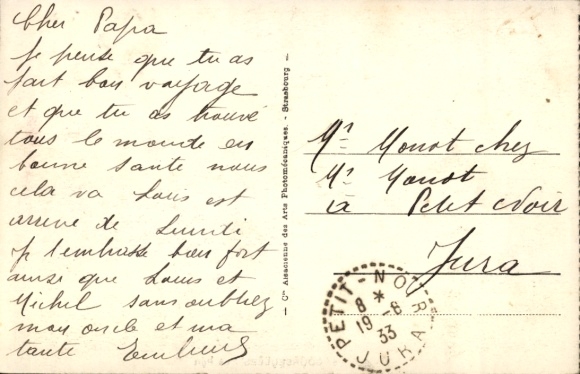 Cher Papa
Je pense que tu as
fait bon voyage
et que tu as trouvé
tous le monde en
bonne santé nous
cela va Louis est
arrivé de Lundi
je t'embrasse bien fort
ainsi que Louis et
Michel sans oublier
mon oncle et ma
tante
— Cie Alsacienne des Arts Photomécaniques. - Strasbourg —
Mr Monot chez
Mr Monot
à Petit Noir
Jura
PETIT-NOIR
8 *
19 -8
33
JURA